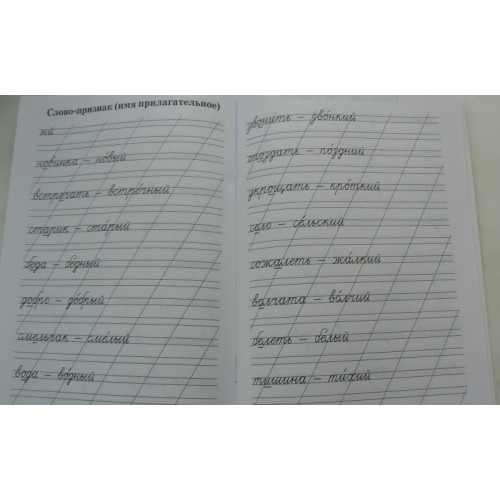 Слово-признак (имя прилагательное)
ый
новинка – но́вый
встречать – встре́чный
старик – ста́рый
беда – бе́дный
добро – до́брый
смельчак – сме́лый
вода – во́дный
звонить – зво́нкий
опоздать – по́здний
укрощать – кро́ткий
село – се́льский
сожалеть – жа́лкий
волчата – во́лчий
белеть – бе́лый
тишина – ти́хий